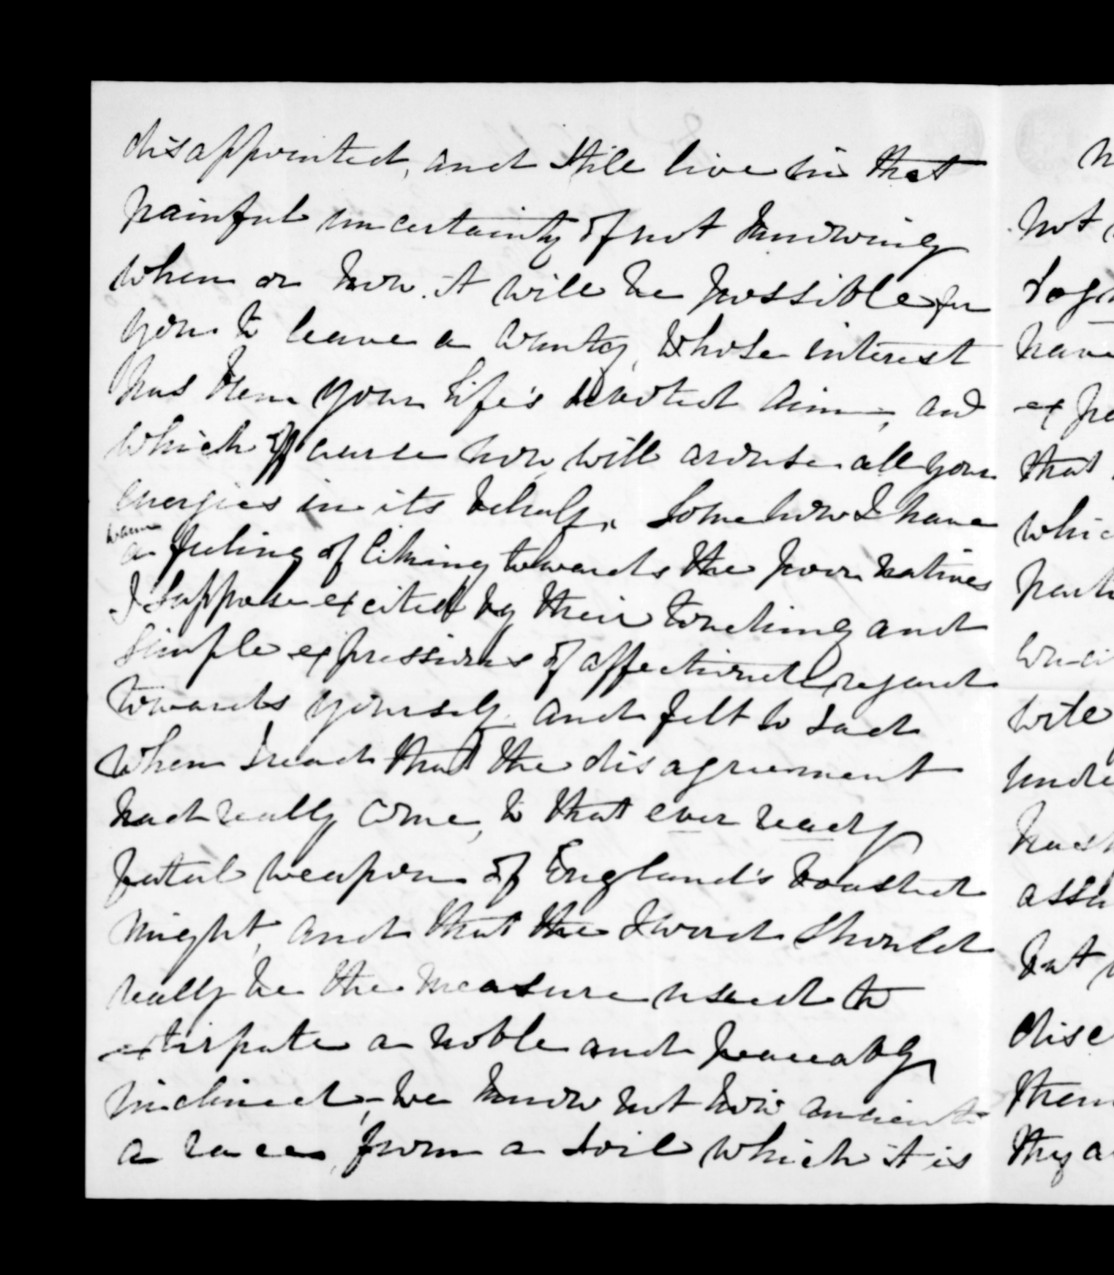 disappointed, and still live in that
painful uncertainty of not knowing
when or how it will be possible for
you to leave a country, whose interest
has been your life's devoted aim, and
which of course now will arouse all your
energies in its behalf. Somehow I have
warm
a feeling of liking towards the poor natives
I suppose excited by their touching and
simple expressions of affectionate regard
towards yourself and felt so sad
when I read that the disagreement
had really come, to that ever ready
fatal weapon of England's boasted
might, and that the sword should
really be the measure used to
extirpate a noble and peaceably
inclined, we know not how ancient
a race, from a soil which it is
not
have
that
but